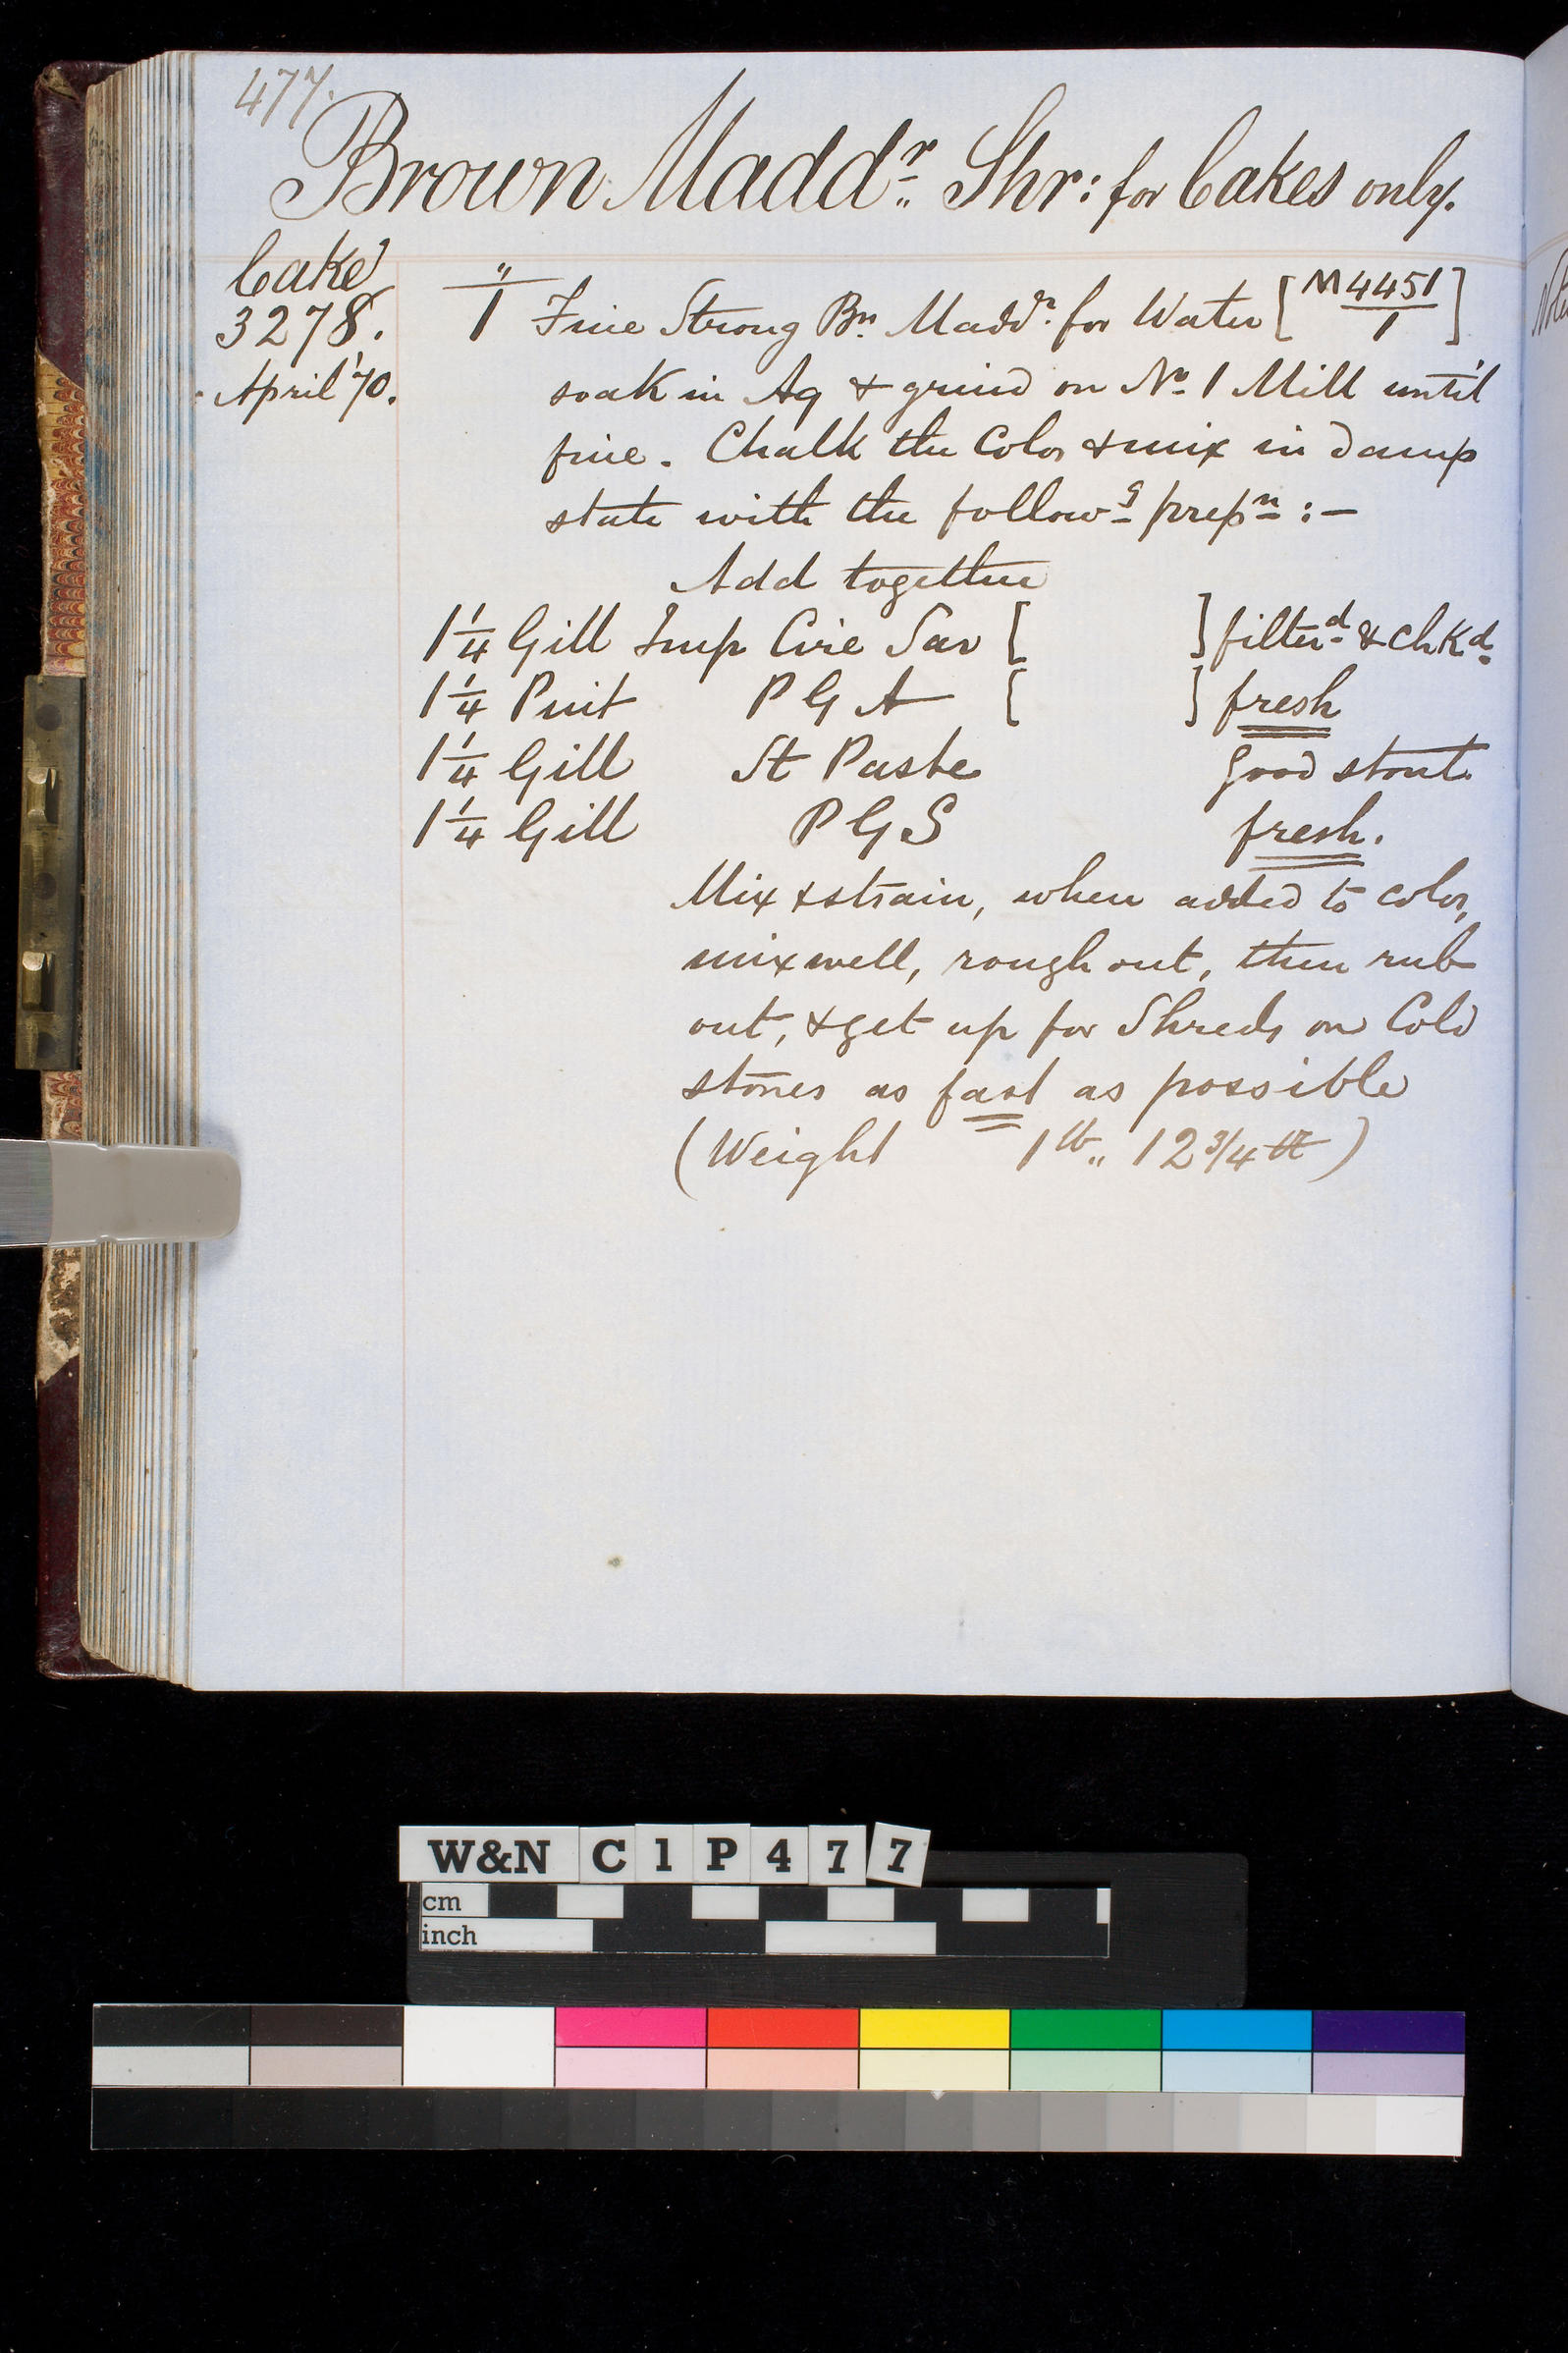 477.
Brown Madd^r. Shr: for Cakes only.
Cake
3278.
April '70.
"/1 Fine Strong B^n. Madd^r. for Water [M 4451/1]
soak in Aq & grind on No 1 Mill until
fine. Chalk the Color & mix in damp
state with the follow^g prep^n :-
Add together
1 1/4 Gill Imp Cire Sav [ ] filter^d & chK^d.
1 1/4 Pint P G A [ ] fresh
1 1/4 Gill St Paste Good stout
1 1/4 Gill P G S fresh.
Mix & strain, when added to color,
mix well, rough out, then rub
out, & get up for Shreds on Cold
stones as fast as possible
(Weight 1 lb.. 12 3/4 )
W&N C 1 P 4 7 7
cm
inch